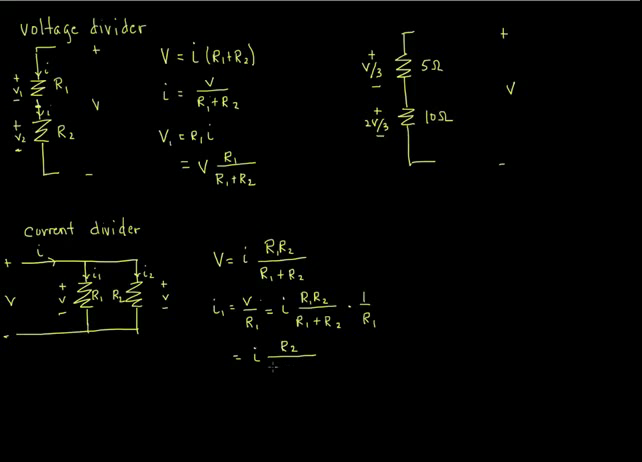 voltage divider
+
i
+
V₁
-
R₁
V
i
+
V₂
-
R₂
-
V = i (R₁+R₂)
i = V / (R₁+R₂)
V₁ = R₁ i
= V R₁ / (R₁+R₂)
+
+
V/3
-
5Ω
V
+
2V/3
-
10Ω
-
current divider
i
+
i₁
i₂
V
+
V
-
R₁
R₂
+
V
-
-
V = i R₁R₂ / (R₁+R₂)
i₁ = V/R₁ = i R₁R₂ / (R₁+R₂) · 1/R₁
= i R₂